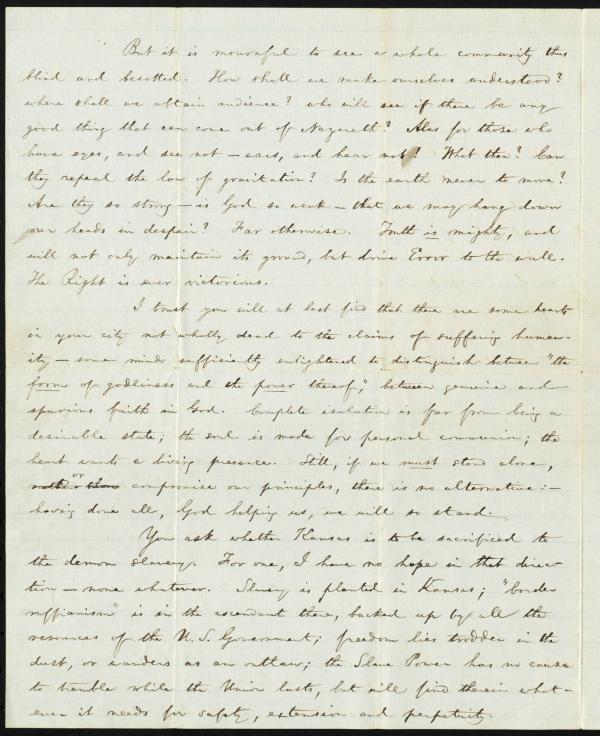 But it is mournful to see a whole community thus
blind and besotted. How shall we make ourselves understood?
where shall we obtain audience? who will see if there be any
good thing that can come out of Nazareth? Alas for those who
have eyes, and see not — ears, and hear not! What then? Can
they repeal the law of gravitation? Is the earth never to move?
Are they so strong — is God so weak — that we may hang down
our heads in despair? Far otherwise. Truth is mighty, and
will not only maintain its ground, but drive Error to the wall.
The Right is ever victorious.
I trust you will at last find that there are some hearts
in your city not wholly dead to the claims of suffering human-
ity — some minds sufficiently enlightened to distinguish between "the
form of godliness and the power thereof," between genuine and
spurious faith in God. Complete isolation is far from being a
desirable state; the soul is made for personal communion; the
heart wants a living presence. Still, if we must stand alone,
rather than or compromise our principles, there is no alternative: —
having done all, God helping us, we will so stand.
You ask whether Kansas is to be sacrificed to
the demon slavery. For one, I have no hope in that direc-
tion — none whatever. Slavery is planted in Kansas; "border
ruffianism" is in the ascendant there, backed up by all the
resources of the U. S. Government; freedom lies trodden in the
dust, or wanders as an outlaw; the Slave Power has no cause
to tremble while the Union lasts, but will find therein what-
ever it needs for safety, extension and perpetuity.